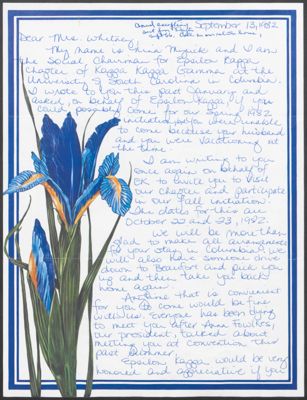 September 13, 1982
Dear Mrs. Whitney,
My name is
and I am
the Social Chairman for Epsilon Kappa
chapter of Kappa Kappa Gamma at the
University of South Carolina in Columbia.
I wrote to you this past January and
asked, on behalf of Epsilon Kappa, if you
could possibly come for our Spring 1982
initiation. You were unable
to come because your husband
and you were vacationing at
the time.
I am writing to you
once again on behalf of
EK to invite you to visit
our chapter and participate
in our fall initiation.
The dates for this are
October 22 and 23, 1982.
We will be more than
glad to make all arrangements
for your stay in Columbia. We
will also have someone drive
down to Beaufort and pick you
up and then take you back
home again.
Anytime that is convenient
for you to come would be fine
with us. Everyone has been dying
to meet you after Ann Fowlkes,
our president, talked about
meeting you at Convention this
past summer.
Epsilon Kappa would be very
honored and appreciative if you